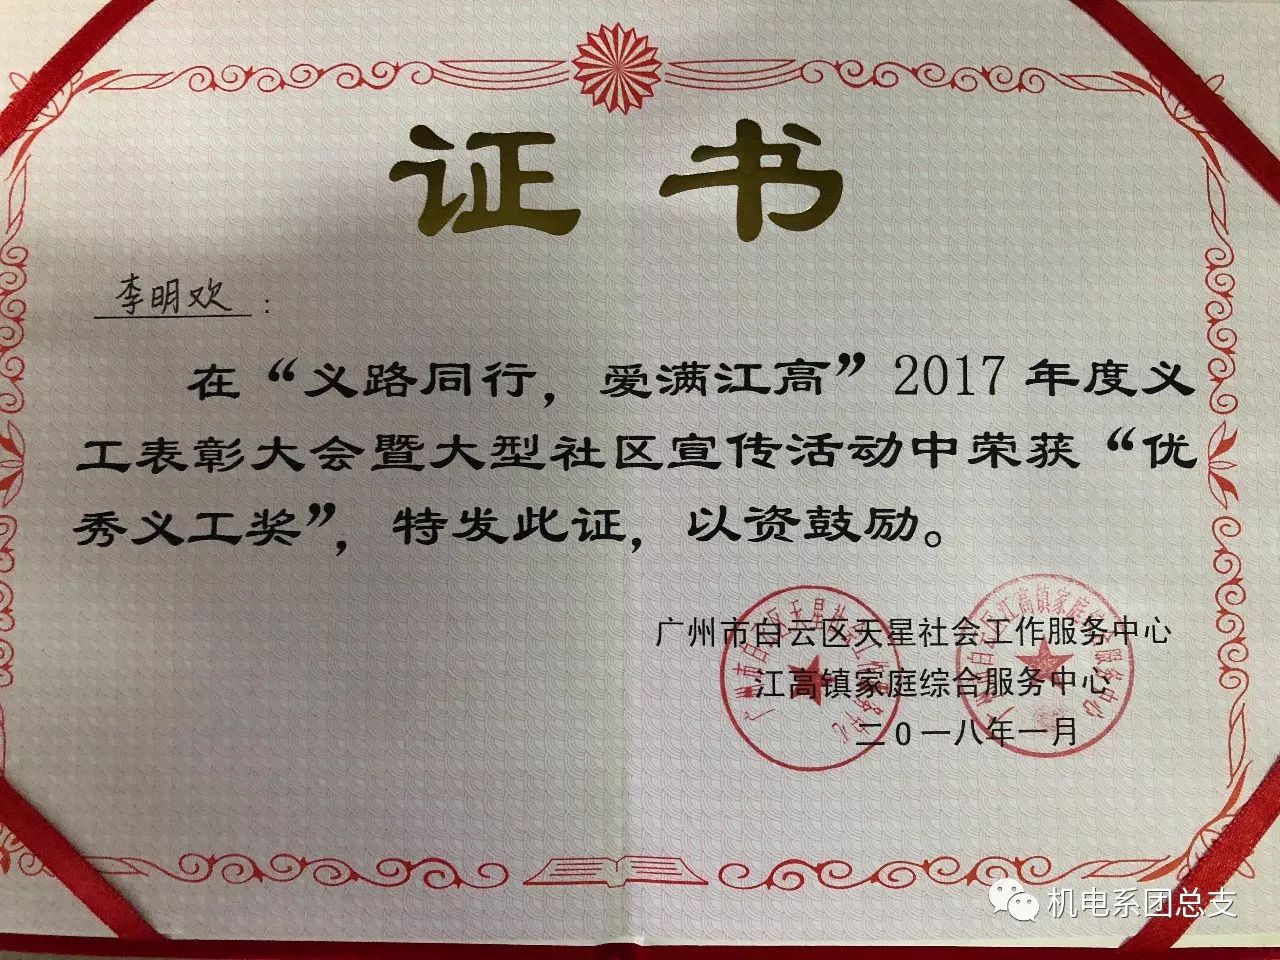 证书
李明欢：
在“义路同行，爱满江高”2017年度义
工表彰大会暨大型社区宣传活动中荣获“优
秀义工奖”，特发此证，以资鼓励。
广州市白云区天星社会工作服务中心
江高镇家庭综合服务中心
二0一八年一月
广州市白云区天星社会工作服务中心
机电系团总支